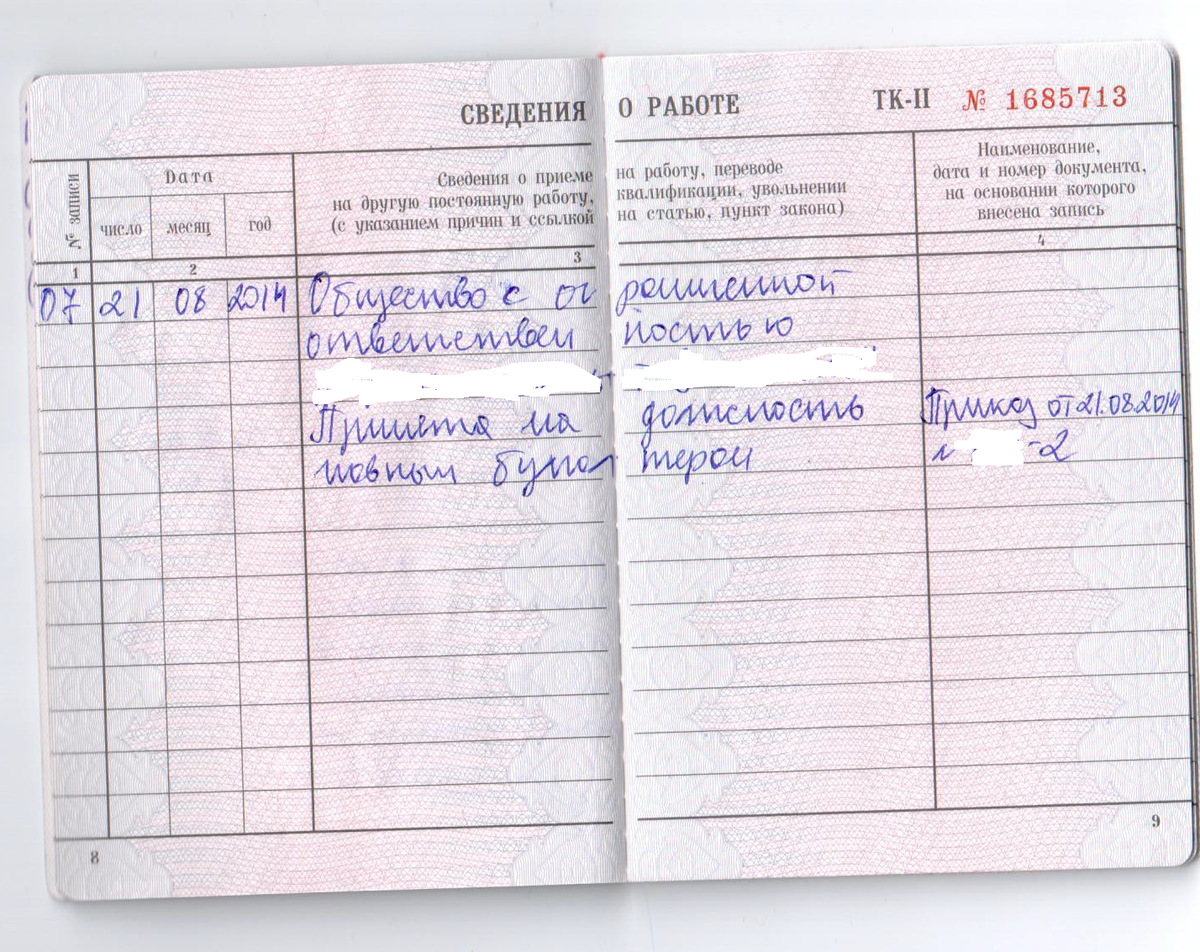 СВЕДЕНИЯ О РАБОТЕ ТК-II № 1685713
№ записи
Дата
число месяц год
Сведения о приеме на работу, переводе
на другую постоянную работу, квалификации, увольнении
(с указанием причин и ссылкой на статью, пункт закона)
Наименование,
дата и номер документа,
на основании которого
внесена запись
1 2 3 4
07 21 08 2014 Общество с ог раниченной
ответствен ностью
Принята на должность Приказ от 21.08.2014
главным бухгал тером -2
8 9